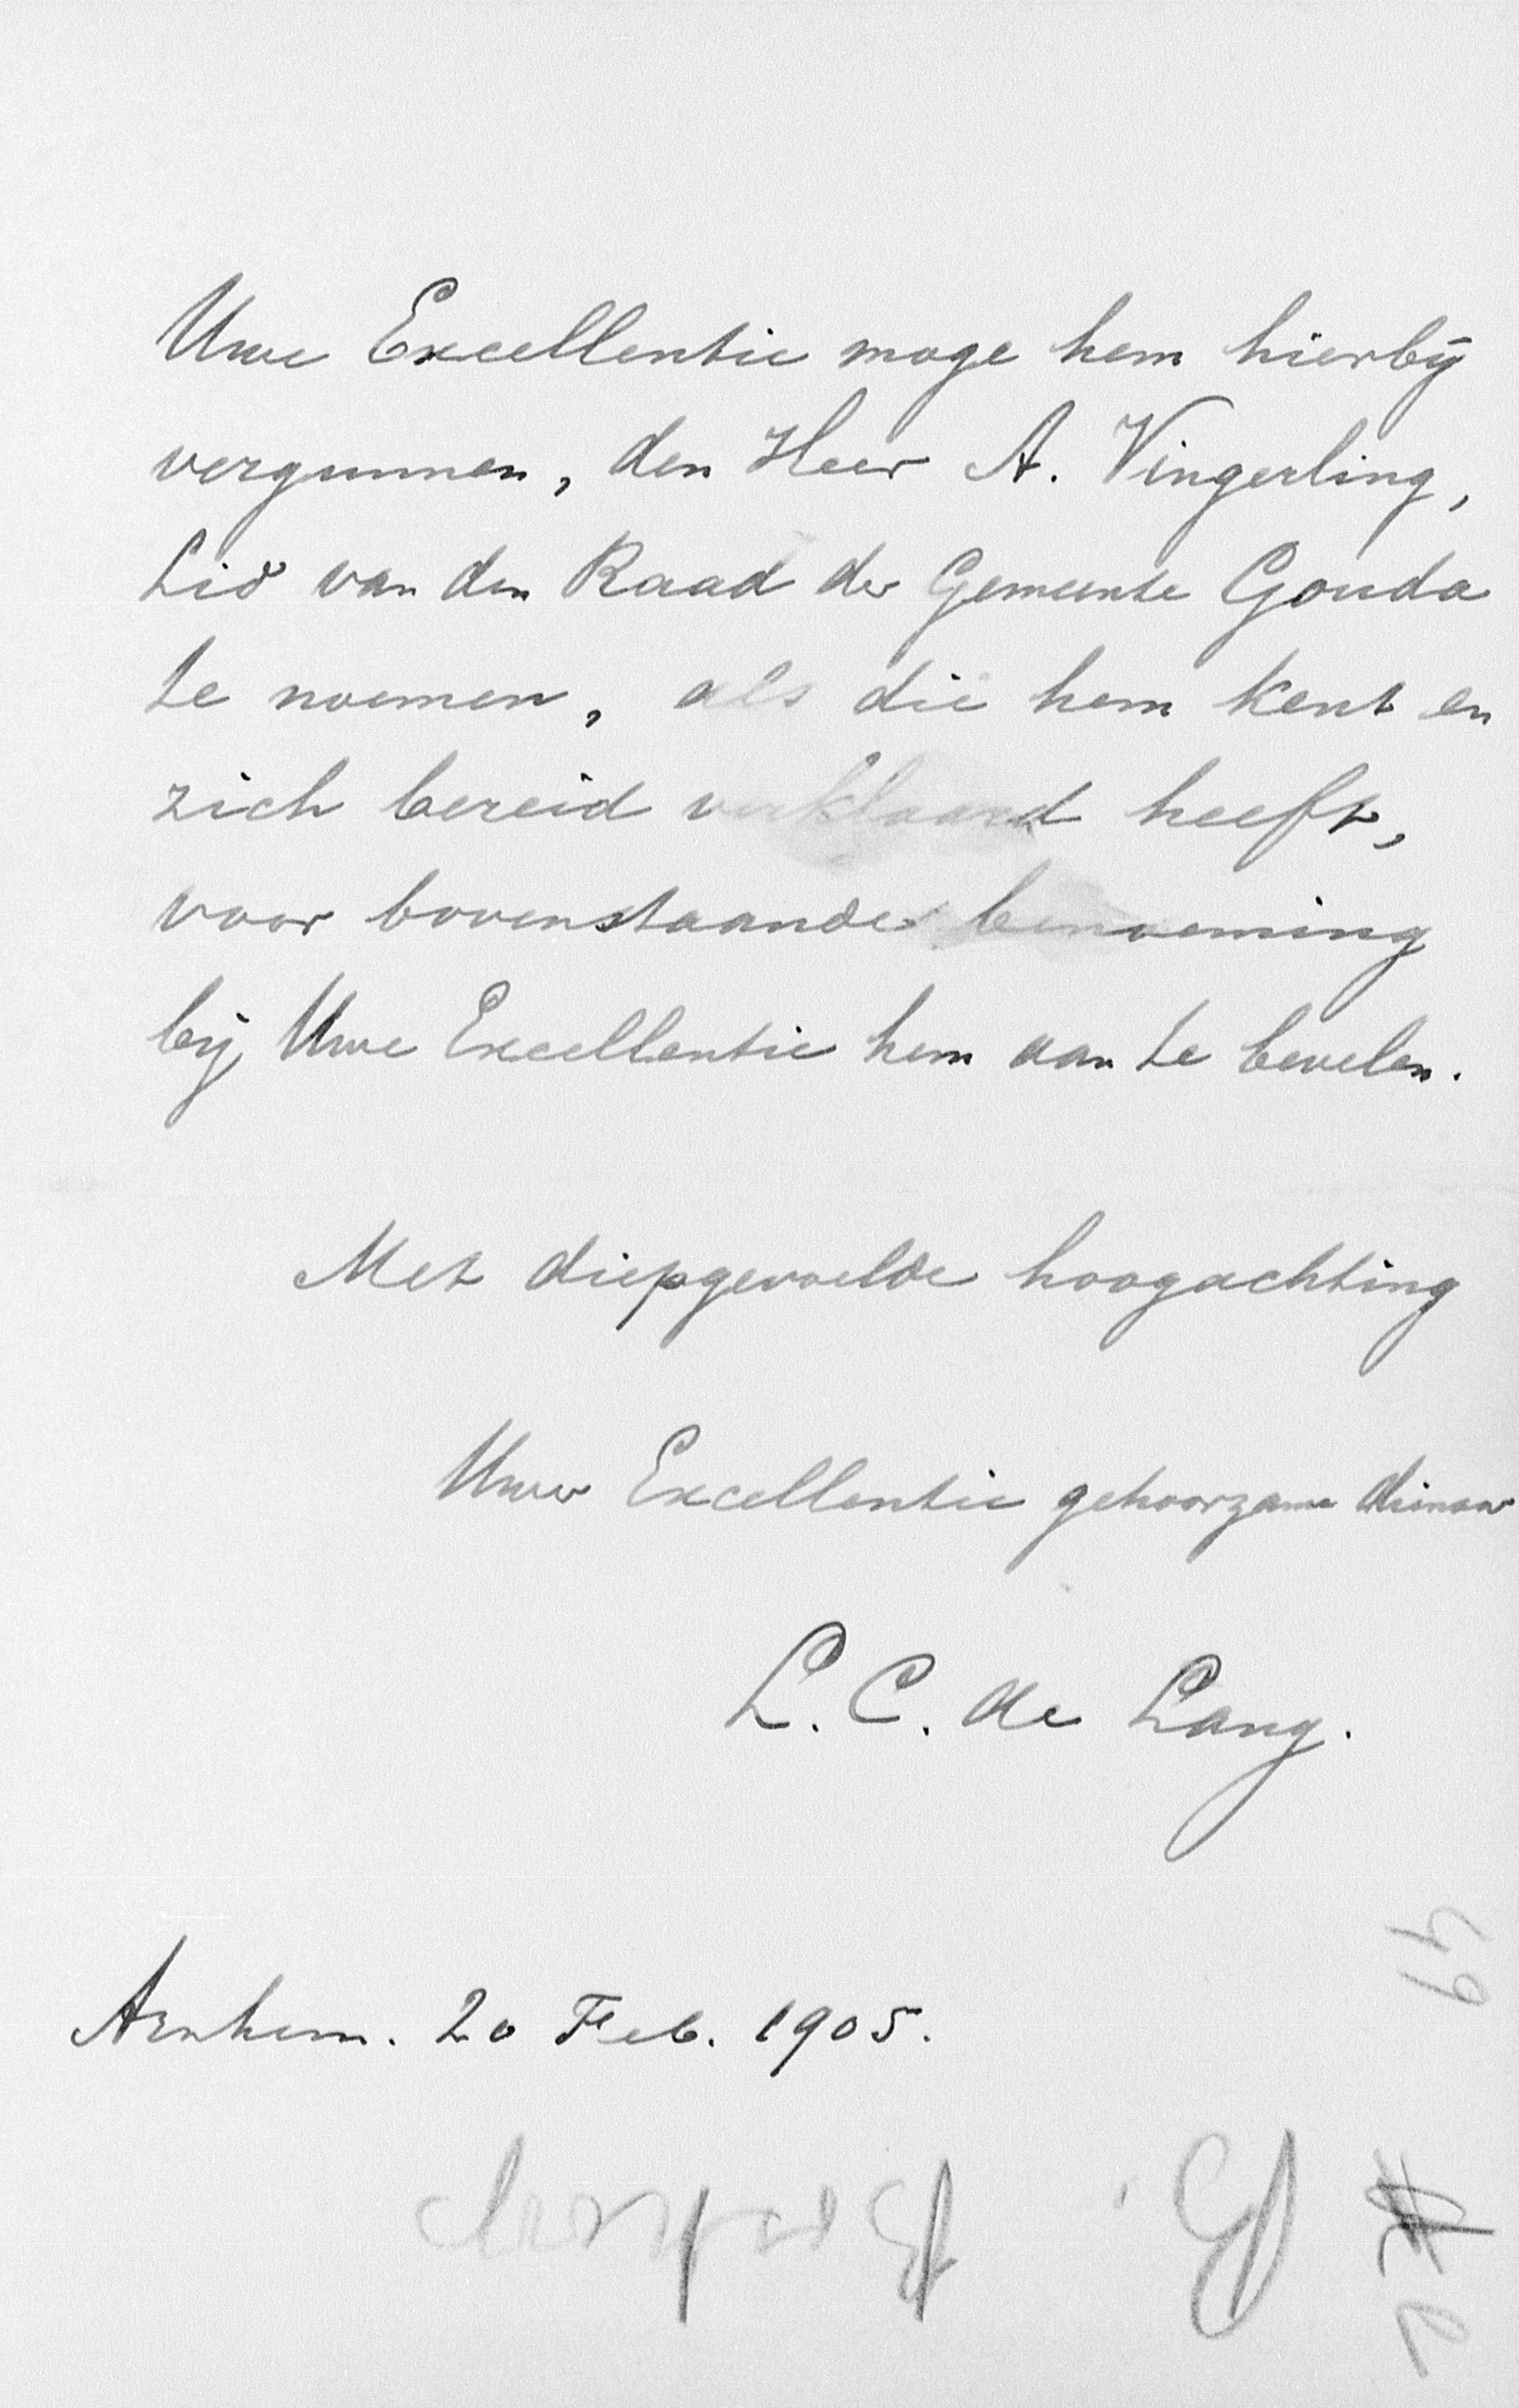 Uwe Excellentie moge hem hierbij
vergunnen, den Heer A. Vingerling,
Lid van den Raad der Gemeente Gouda
te noemen, als die hem kent en
zich bereid verklaard heeft,
voor bovenstaande benoeming
bij Uwe Excellentie hem aan te bevelen.
Met diepgevoelde hoogachting
Uwer Excellentie gehoorzame dienaar
L. C. de Lang.
Arnhem. 20 Feb. 1905.